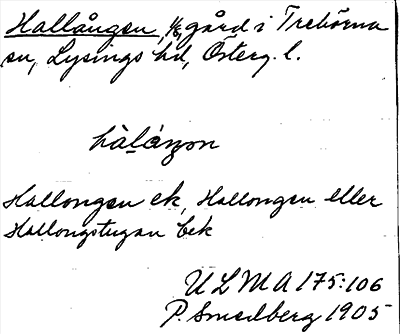 Hallången, 1/8, gård i Trehörna
sn, Lysings hd, Österg. l.
Hallongen ek, Hallongen eller
Hallongstugan bek
ULMA 175:106
P. Smedberg 1905